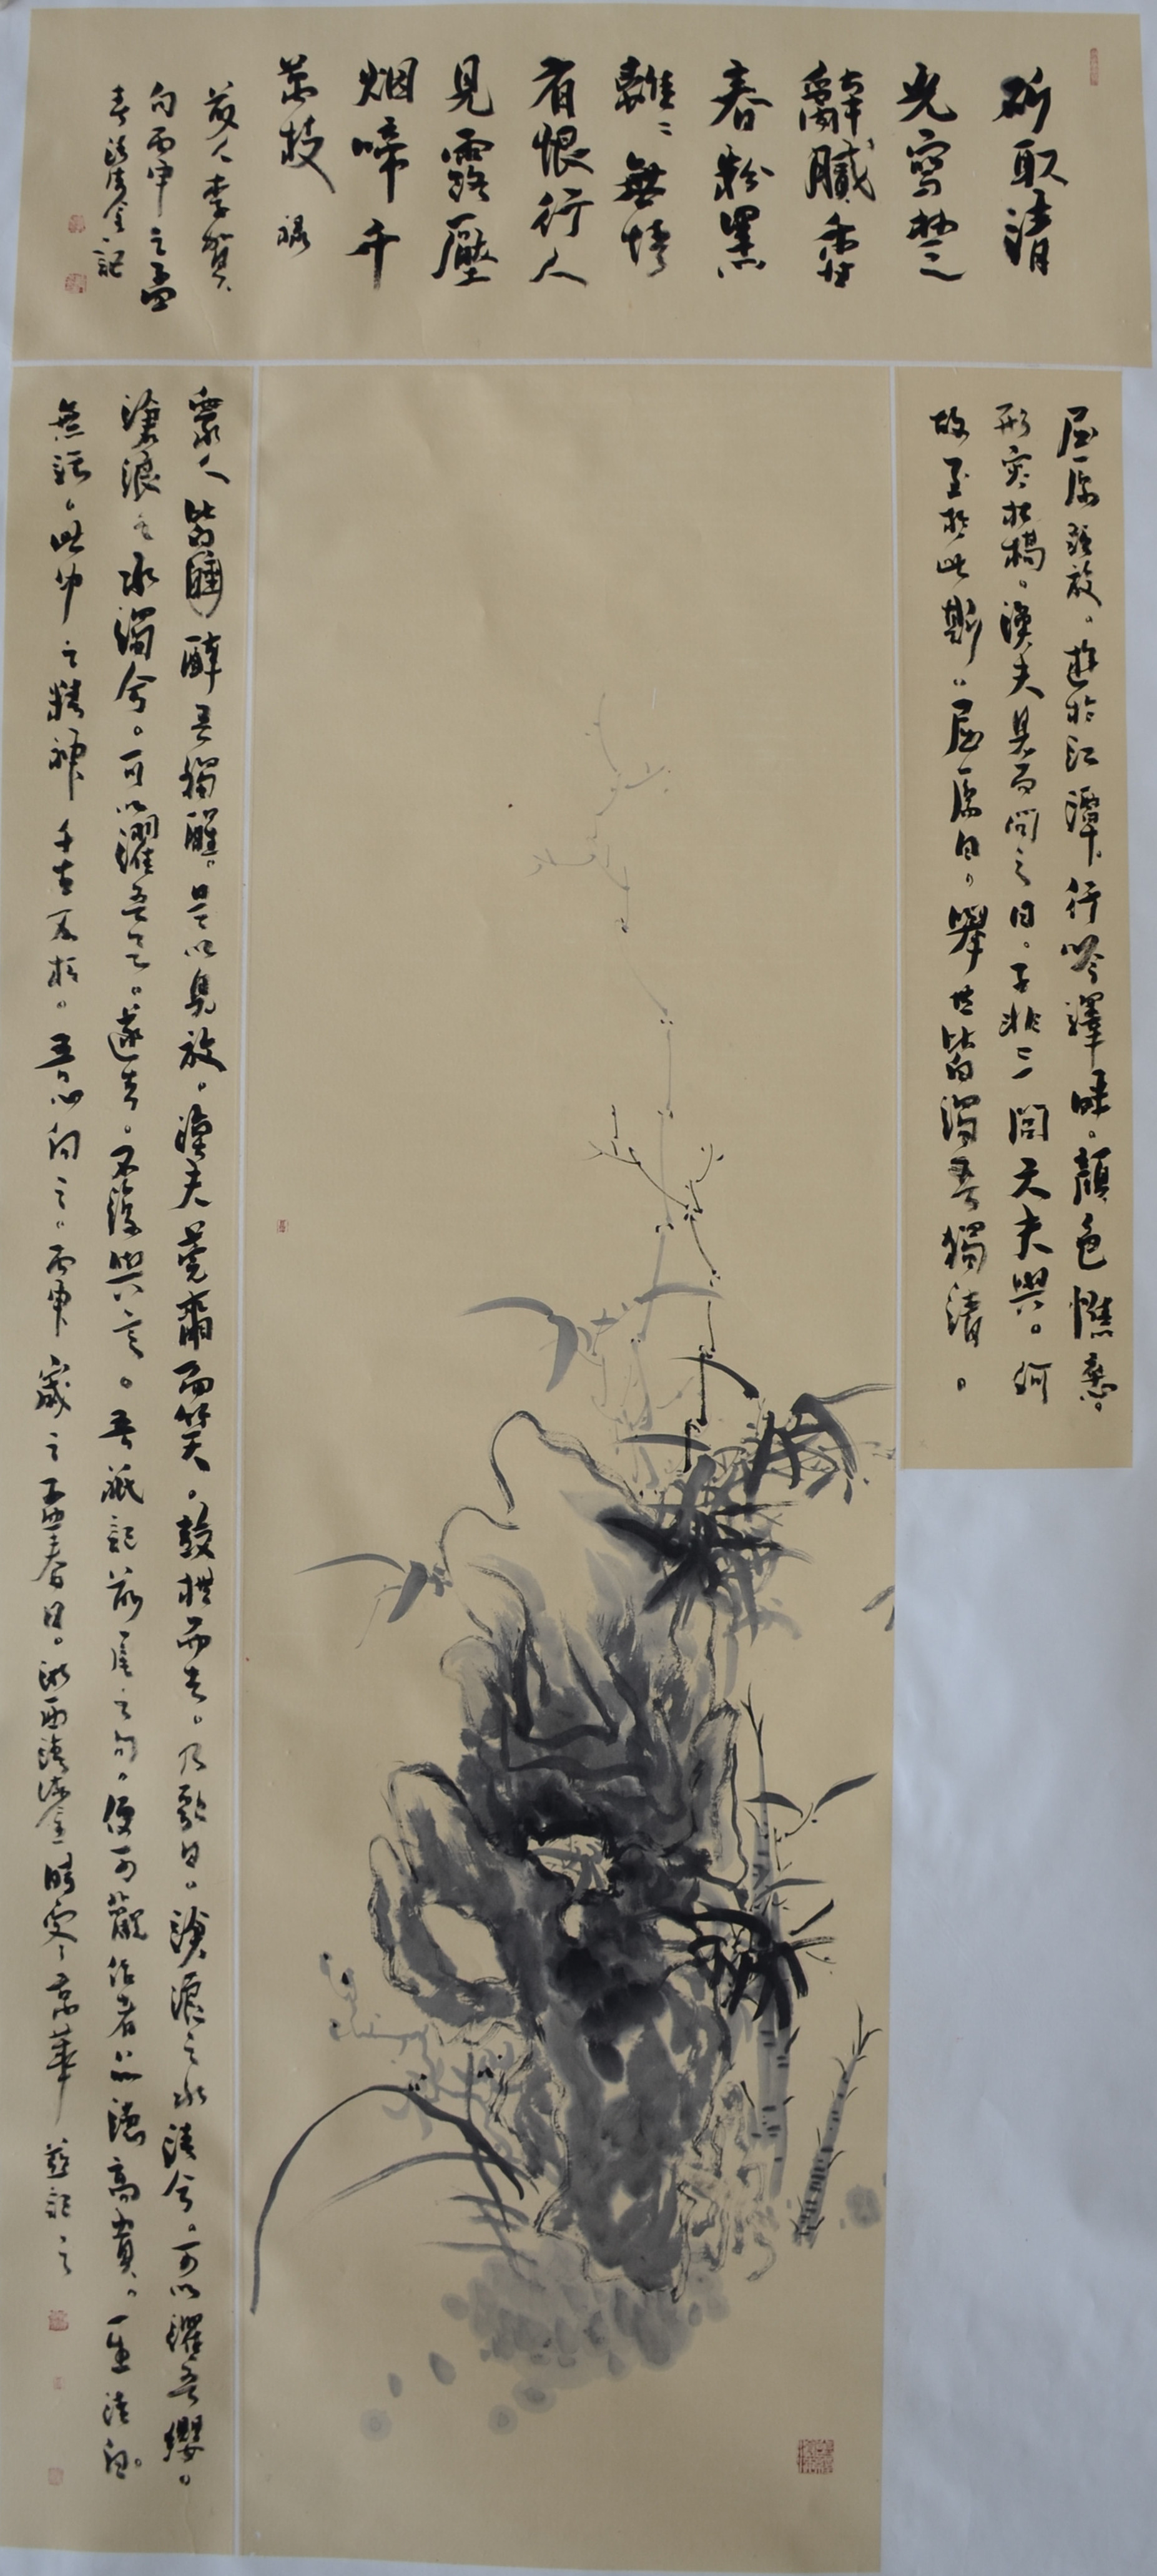 斫取清
光寫楚
辭膩香
春粉黑
離〻無情
有恨行人
見露壓
烟啼千
萬枝 錄
前人李賀
句丙申之孟
春 金記
屈原既放。遊於江潭行吟澤畔。顏色憔悴。
形容枯槁。漁夫見而問之曰。子非三閭大夫與。何
故至於此斯。屈原曰，舉世皆濁吾獨清。
眾人皆睡醉吾獨醒。是以見放。漁夫莞爾而笑。鼓枻而去。乃歌曰。滄浪之水清兮。可以濯吾纓。
滄浪之水濁兮。可以濯吾足。遂去。不復與言。吾祇記前尾之句。便可觀作者品德高貴。一生清白。
無 此中之精神千古不朽。吾心向之。丙申歲之孟春日。浙西 金 時客京華 並記之